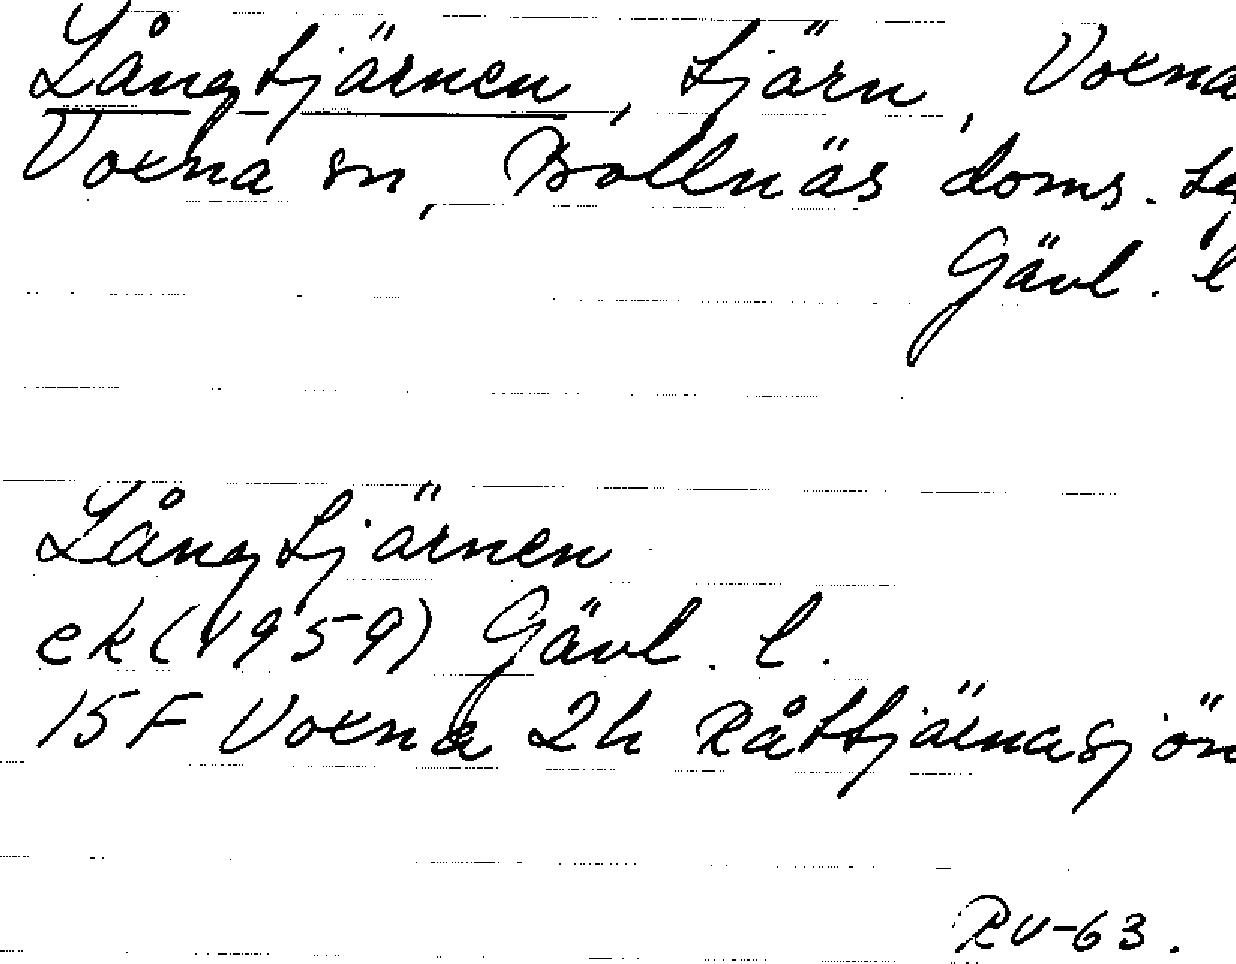 Långtjärnen, tjärn, Voxna
Voxna sn, Bollnäs doms. tg,
Gävl. l
Långtjärnen
ek (1959) Gävl. l.
15F Voxna 2h Råttjärnasjön
RV-63.